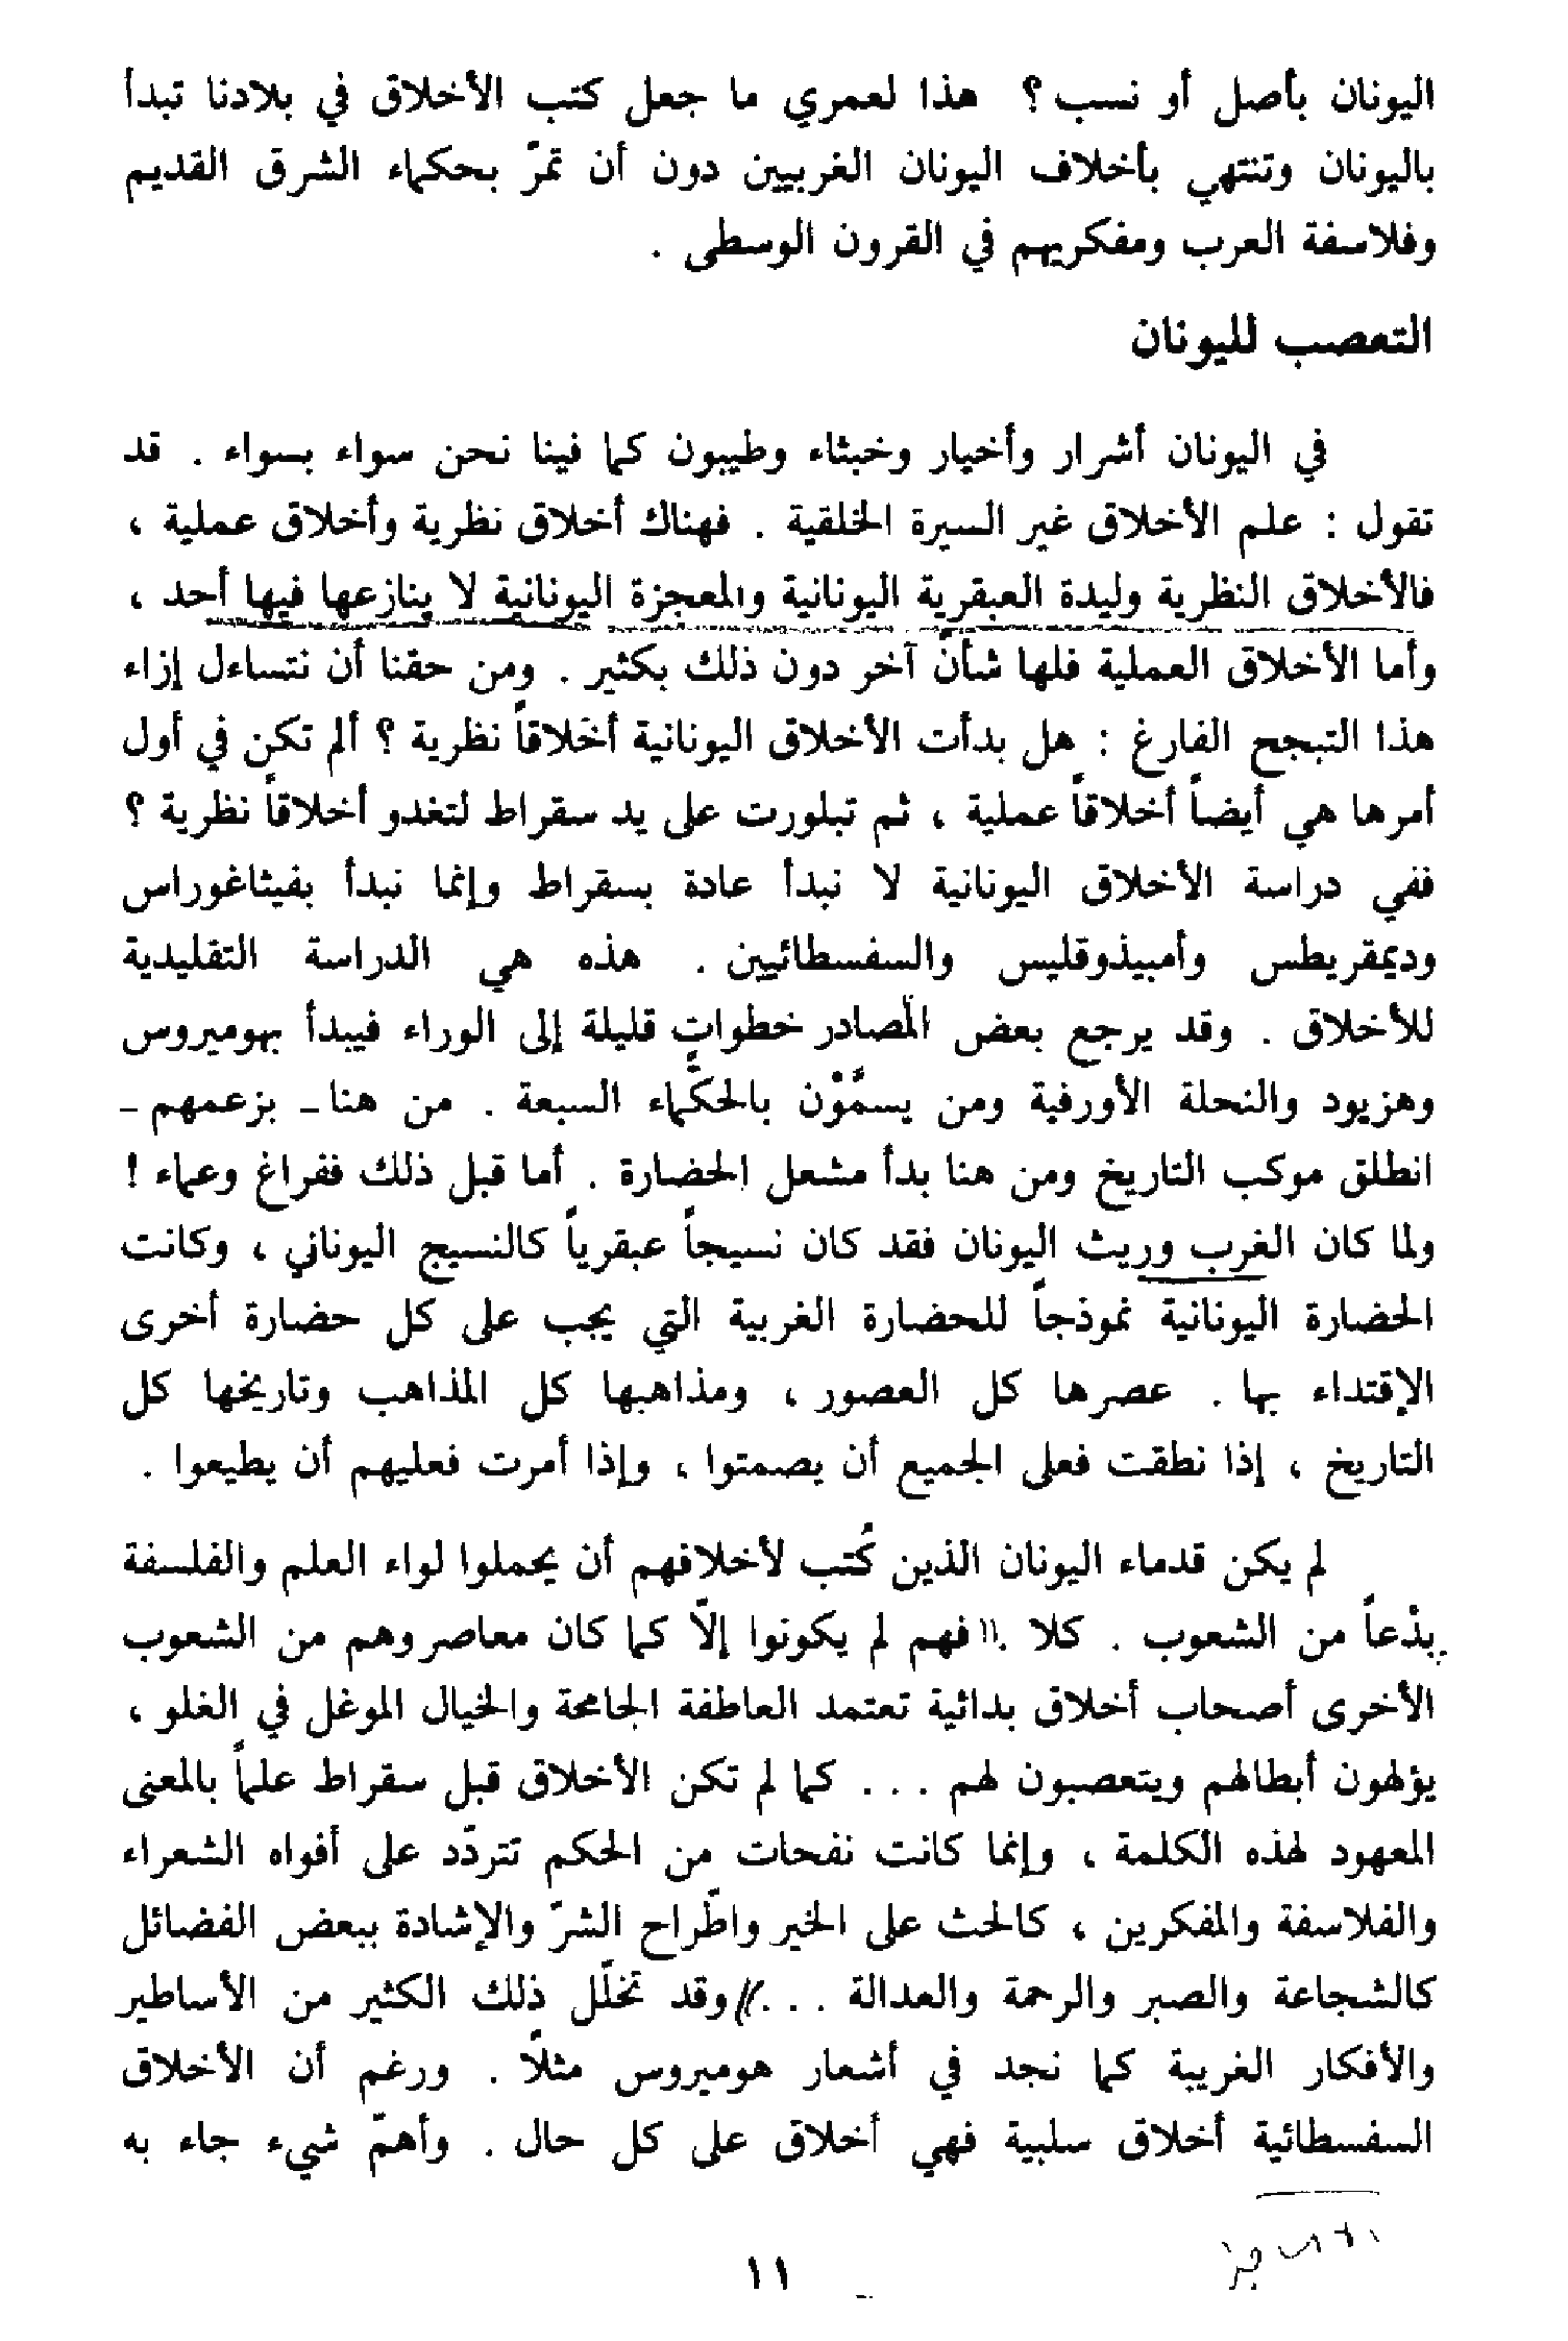 اليونان بأصل أو نسب ؟ هذا لعمري ما جعل كتب الأخلاق في بلادنا تبدأ
باليونان وتنتهي بأخلاف اليونان الغربيين دون أن تمرّ بحكماء الشرق القديم
وفلاسفة العرب ومفكريهم في القرون الوسطى .
التعصب لليونان
في اليونان أشرار وأخيار وخبثاء وطيبون كما فينا نحن سواء بسواء . قد
تقول : علم الأخلاق غير السيرة الخلقية . فهناك أخلاق نظرية وأخلاق عملية ،
فالأخلاق النظرية وليدة العبقرية اليونانية والمعجزة اليونانية لا ينازعها فيها أحد ،
وأما الأخلاق العملية فلها شأنٌ آخر دون ذلك بكثير . ومن حقنا أن نتساءل إزاء
هذا التبجح الفارغ : هل بدأت الأخلاق اليونانية أخلاقاً نظرية ؟ ألم تكن في أول
أمرها هي أيضاً أخلاقاً عملية ، ثم تبلورت على يد سقراط لتغدو أخلاقاً نظرية ؟
ففي دراسة الأخلاق اليونانية لا نبدأ عادة بسقراط وإنما نبدأ بفيثاغوراس
وديمقريطس وأمبيذوقليس والسفسطائيين . هذه هي الدراسة التقليدية
للأخلاق . وقد يرجع بعض المصادر خطواتٍ قليلة إلى الوراء فيبدأ بهوميروس
وهزيود والنحلة الأورفية ومن يسمَّوْن بالحكماء السبعة . من هنا ـ بزعمهم ـ
انطلق موكب التاريخ ومن هنا بدأ مشعل الحضارة . أما قبل ذلك ففراغ وعماء !
ولما كان الغرب وريث اليونان فقد كان نسيجاً عبقرياً كالنسيج اليوناني ، وكانت
الحضارة اليونانية نموذجاً للحضارة الغربية التي يجب على كل حضارة أخرى
الإقتداء بها . عصرها كل العصور ، ومذاهبها كل المذاهب وتاريخها كل
التاريخ ، إذا نطقت فعلى الجميع أن يصمتوا ، وإذا أمرت فعليهم أن يطيعوا .
لم يكن قدماء اليونان الذين كُتب لأخلافهم أن يحملوا لواء العلم والفلسفة
بِدْعاً من الشعوب . كلا . فهم لم يكونوا إلاّ كما كان معاصروهم من الشعوب
الأخرى أصحاب أخلاق بدائية تعتمد العاطفة الجامحة والخيال الموغل في الغلو ،
يؤلهون أبطالهم ويتعصبون لهم . . . كما لم تكن الأخلاق قبل سقراط علماً بالمعنى
المعهود لهذه الكلمة ، وإنما كانت نفحات من الحكم تتردّد على أفواه الشعراء
والفلاسفة والمفكرين ، كالحث على الخير واطّراح الشرّ والإشادة ببعض الفضائل
كالشجاعة والصبر والرحمة والعدالة . . . وقد تخلّل ذلك الكثير من الأساطير
والأفكار الغريبة كما نجد في أشعار هوميروس مثلاً . ورغم أن الأخلاق
السفسطائية أخلاق سلبية فهي أخلاق على كل حال . وأهمّ شيء جاء به
١١